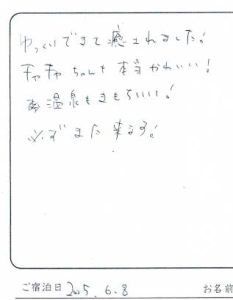 ゆっくりできて癒されました!
チャチャちゃんも本当かわいい!
お温泉もきもちいい!
必ずまた来ます!
ご宿泊日 2015.6.8 お名前